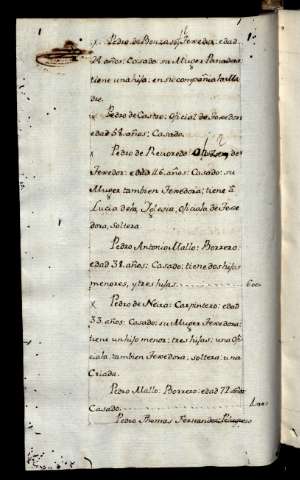 x Pedro de Bouzas: Texedor: edad
24 años: Casado: su Muger Panadera:
tiene una hija: en su compañia
x Pedro de Castro: Oficial de Texedor:
edad 58 años: Casado.
x Pedro de Revoredo de
Texedor: edad 46 años: Casado: su
Muger tambien Texedora; tiene â
Lucia dela Iglesia, oficiala de Texe
dora, soltera
Pedro Antonio Mallo: Borrero:
edad 38 años: Casado: tiene dos hijos
menores, y tres hijas
x Pedro de Neira: Carpintero: edad
33 años: Casado: su Muger Texedora:
tiene un hijo menor: tres hijas: una Ofi
ciala, tambien Texedora: soltera: una
Criada.
Pedro Mallo: Borrero: edad 72 años
Casado.
Pedro Thomas Fernandez